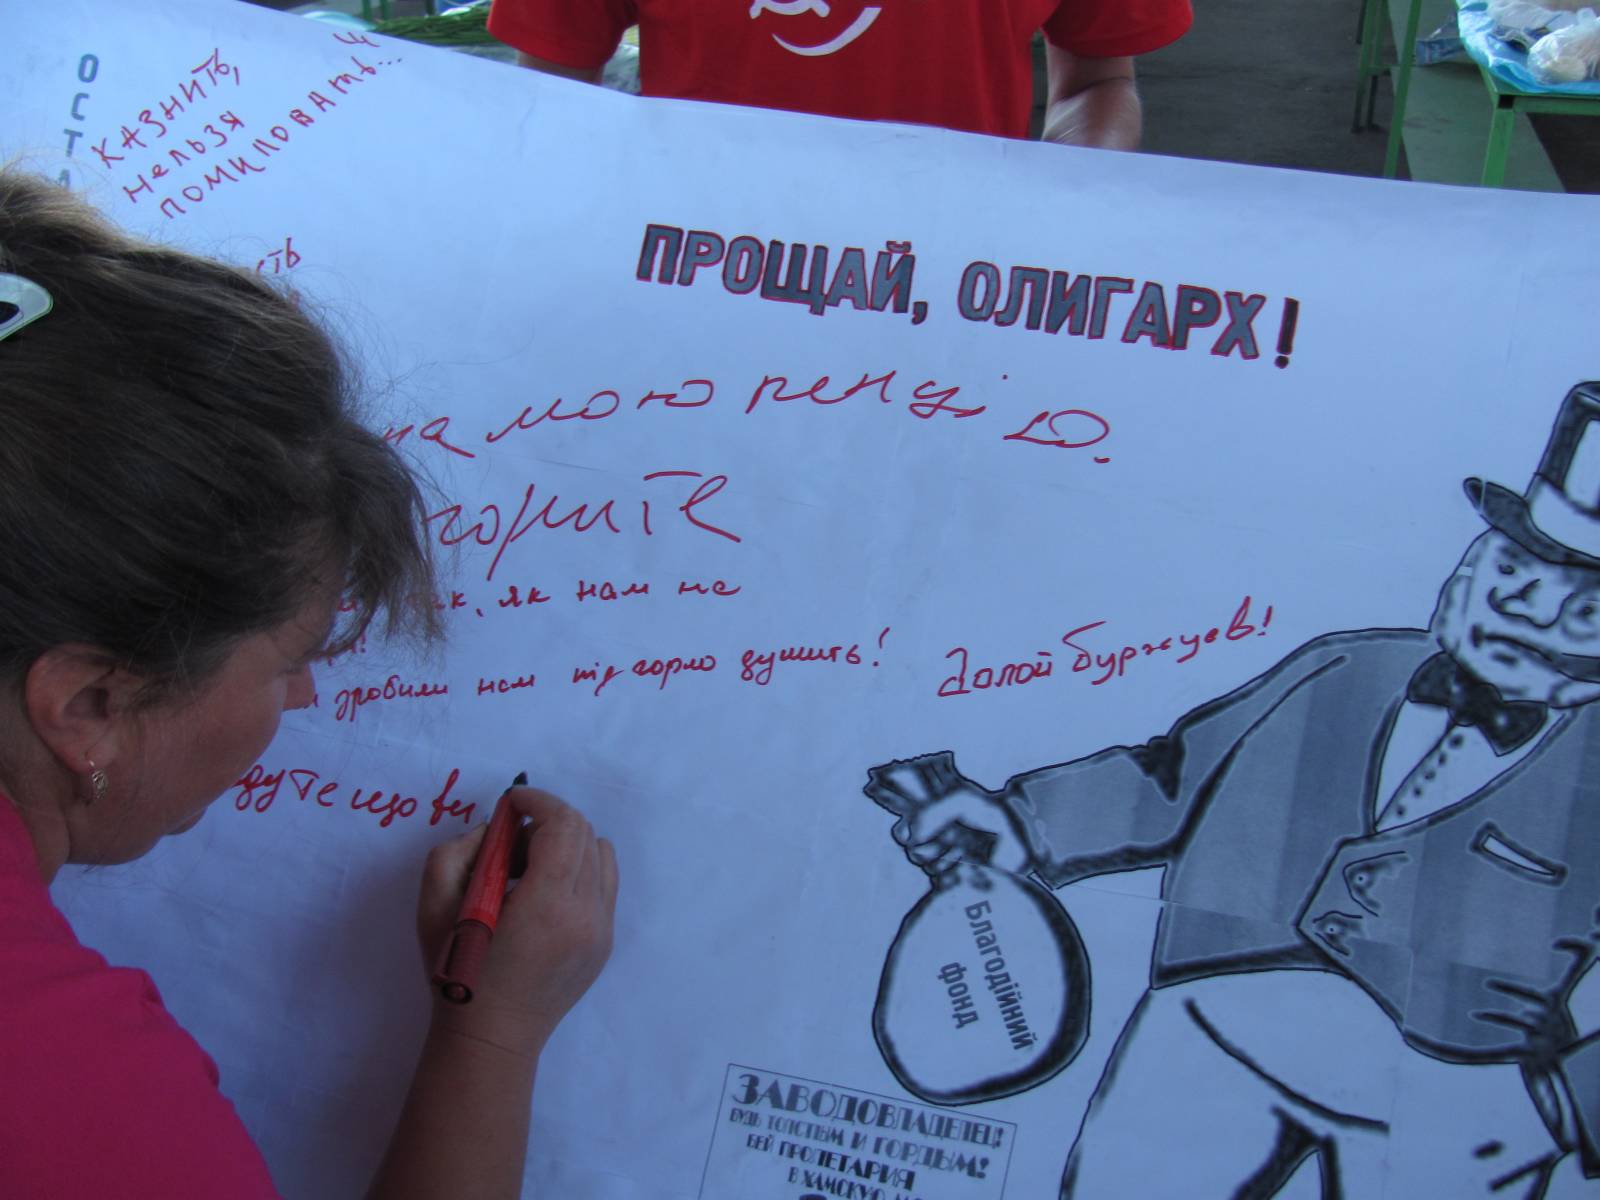 КАЗНИТЬ,
НЕЛЬЗЯ
ПОМИЛОВАТЬ...
ПРОЩАЙ, ОЛИГАРХ!
на мою пенцію.
горите
як нам не
зробили нам під горло душить!
Долой буржуев!
що ви
Благодійний
фонд
ЗАВОДОВЛАДЕЛЕЦ!
БУДЬ ТОЛСТЫМ И ГОРДЫМ!
БЕЙ ПРОЛЕТАРИЯ
В ХАМСКУЮ